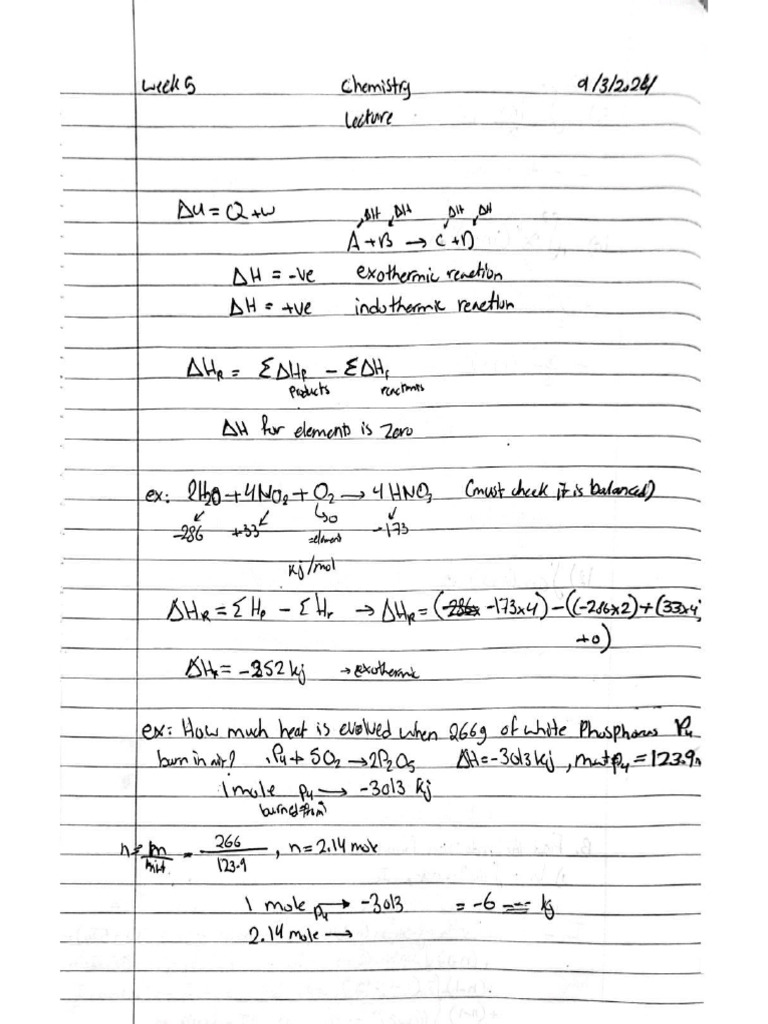 week 5 Chemistry 9/3/2024
Lecture
ΔU = Q + w
ΔH ΔH ΔH ΔH
A + B → C + D
ΔH = -ve exothermic reaction
ΔH = +ve indothermic reaction
ΔH_R = ΣΔH_P − ΣΔH_r
products reactants
ΔH for elements is zero
ex: 2H₂O + 4NO₂ + O₂ → 4HNO₃ (must check it is balanced)
-286 +33 0 -173
=element
kj/mol
ΔH_R = ΣH_P − ΣH_r → ΔH_R = (-173×4) − ((-286×2) + (33×4)
+0)
ΔH_R = -252 kj → exothermic
ex: How much heat is evolved when 266g of white Phosphorus P₄
burn in air? P₄ + 5O₂ → 2P₂O₅ ΔH = -3013 kj, mwt P₄ = 123.9
1 mole P₄ → -3013 kj
burned from
n = m/mwt = 266/123.9, n = 2.14 mole
1 mole P₄ → -3013 = -6 kj
2.14 mole →